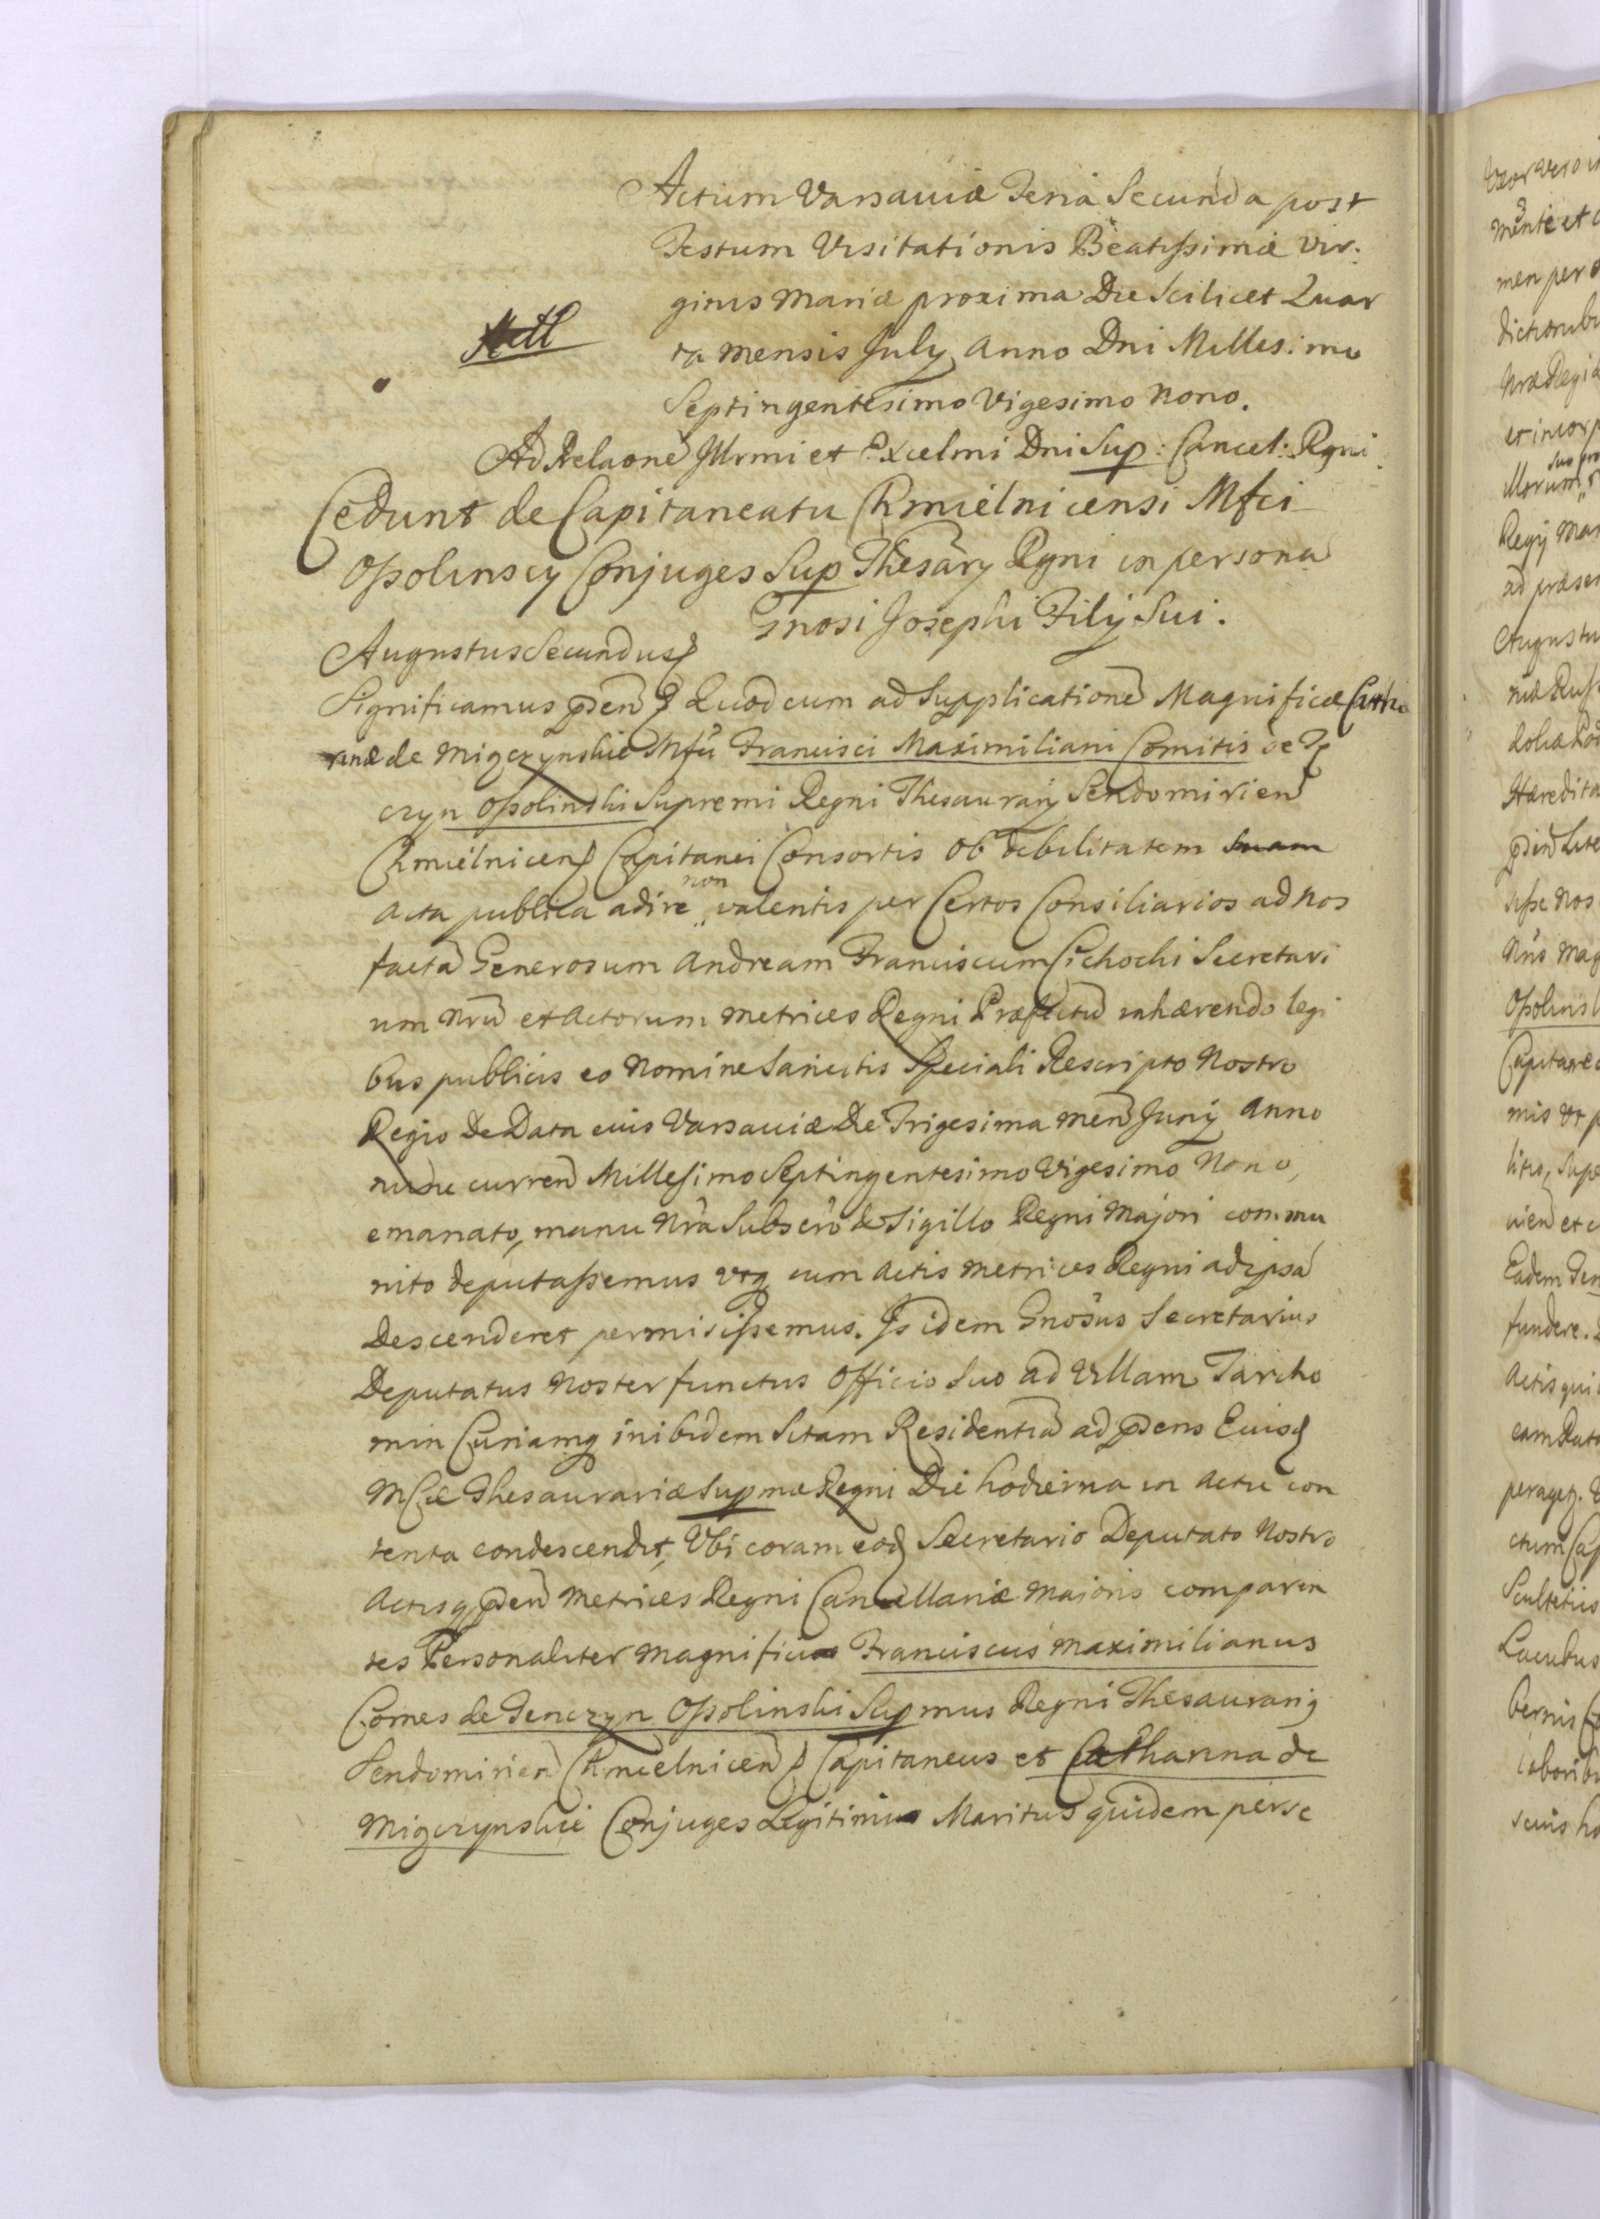 Actum Varsaviæ Feria Secunda post
Festum Visitationis Beatissimæ Vir
ginis Mariæ proxima Die Scilicet Quar
ta mensis July Anno Dni Millesimo
Septingentesimo Vigesimo Nono.
Ad Relaone Illrmi et Excelmi Dni Sup: Cancel: Rgni
Cedunt de Capitaneatu Chmielnicensi Mfci
Ossolinscy Conjuges Sup Thesary Rgni in persona
Gnosi Josephi Filij Sui.
Augustus Secundus
Significamus Quod cum ad Supplicatione Magnificæ Catha
rinæ de Migczynskie Francisci Maximiliani Comitis de Te
czyn Ossolinski Supremi Regni Thesaurarij Sendomirien
Chmielnicen Capitanei Consortis ob debilitatem suam
acta publica adire non valentis per Certos Consiliarios ad nos
facta Generosum Andream Franciscum Cichocki Secretari
um nru et Actorum Metrices Regni Præfectu inhærendo legi
bus publicis eo nomine Sancitis Speciali Rescripto Nostro
Regio De Data eius Varsaviæ Die Trigesima men Junij Anno
nunc curren Millesimo Septingentesimo Vigesimo Nono,
emanato, manu Nra Subscro & Sigillo Regni Majori commu
nito deputassemus utq cum Actis Metrices Regni ad ipsa
Descenderet permisissemus. Is idem Gnosus Secretarius
Deputatus Noster functus Officio Suo ad Villam Tarcho
min Curiamq inibidem Sitam Residentia ad pdens Eiusd
Mcæ Thesaurariæ Supmæ Regni Die hodierna in Actu con
tenta condescendit, Ubi coram eod Secretario Deputato Nostro
Actisq pden Metrices Regni Cancellariæ Majoris comparen
tes Personaliter Magnificus Franciscus Maximilianus
Comes de Tenczyn Ossolinski Supmus Regni Thesaurarij
Sendomirien Chmielnicen Capitaneus et Catharina de
Migczynskie Conjuges Legitimi Maritus quidem per se